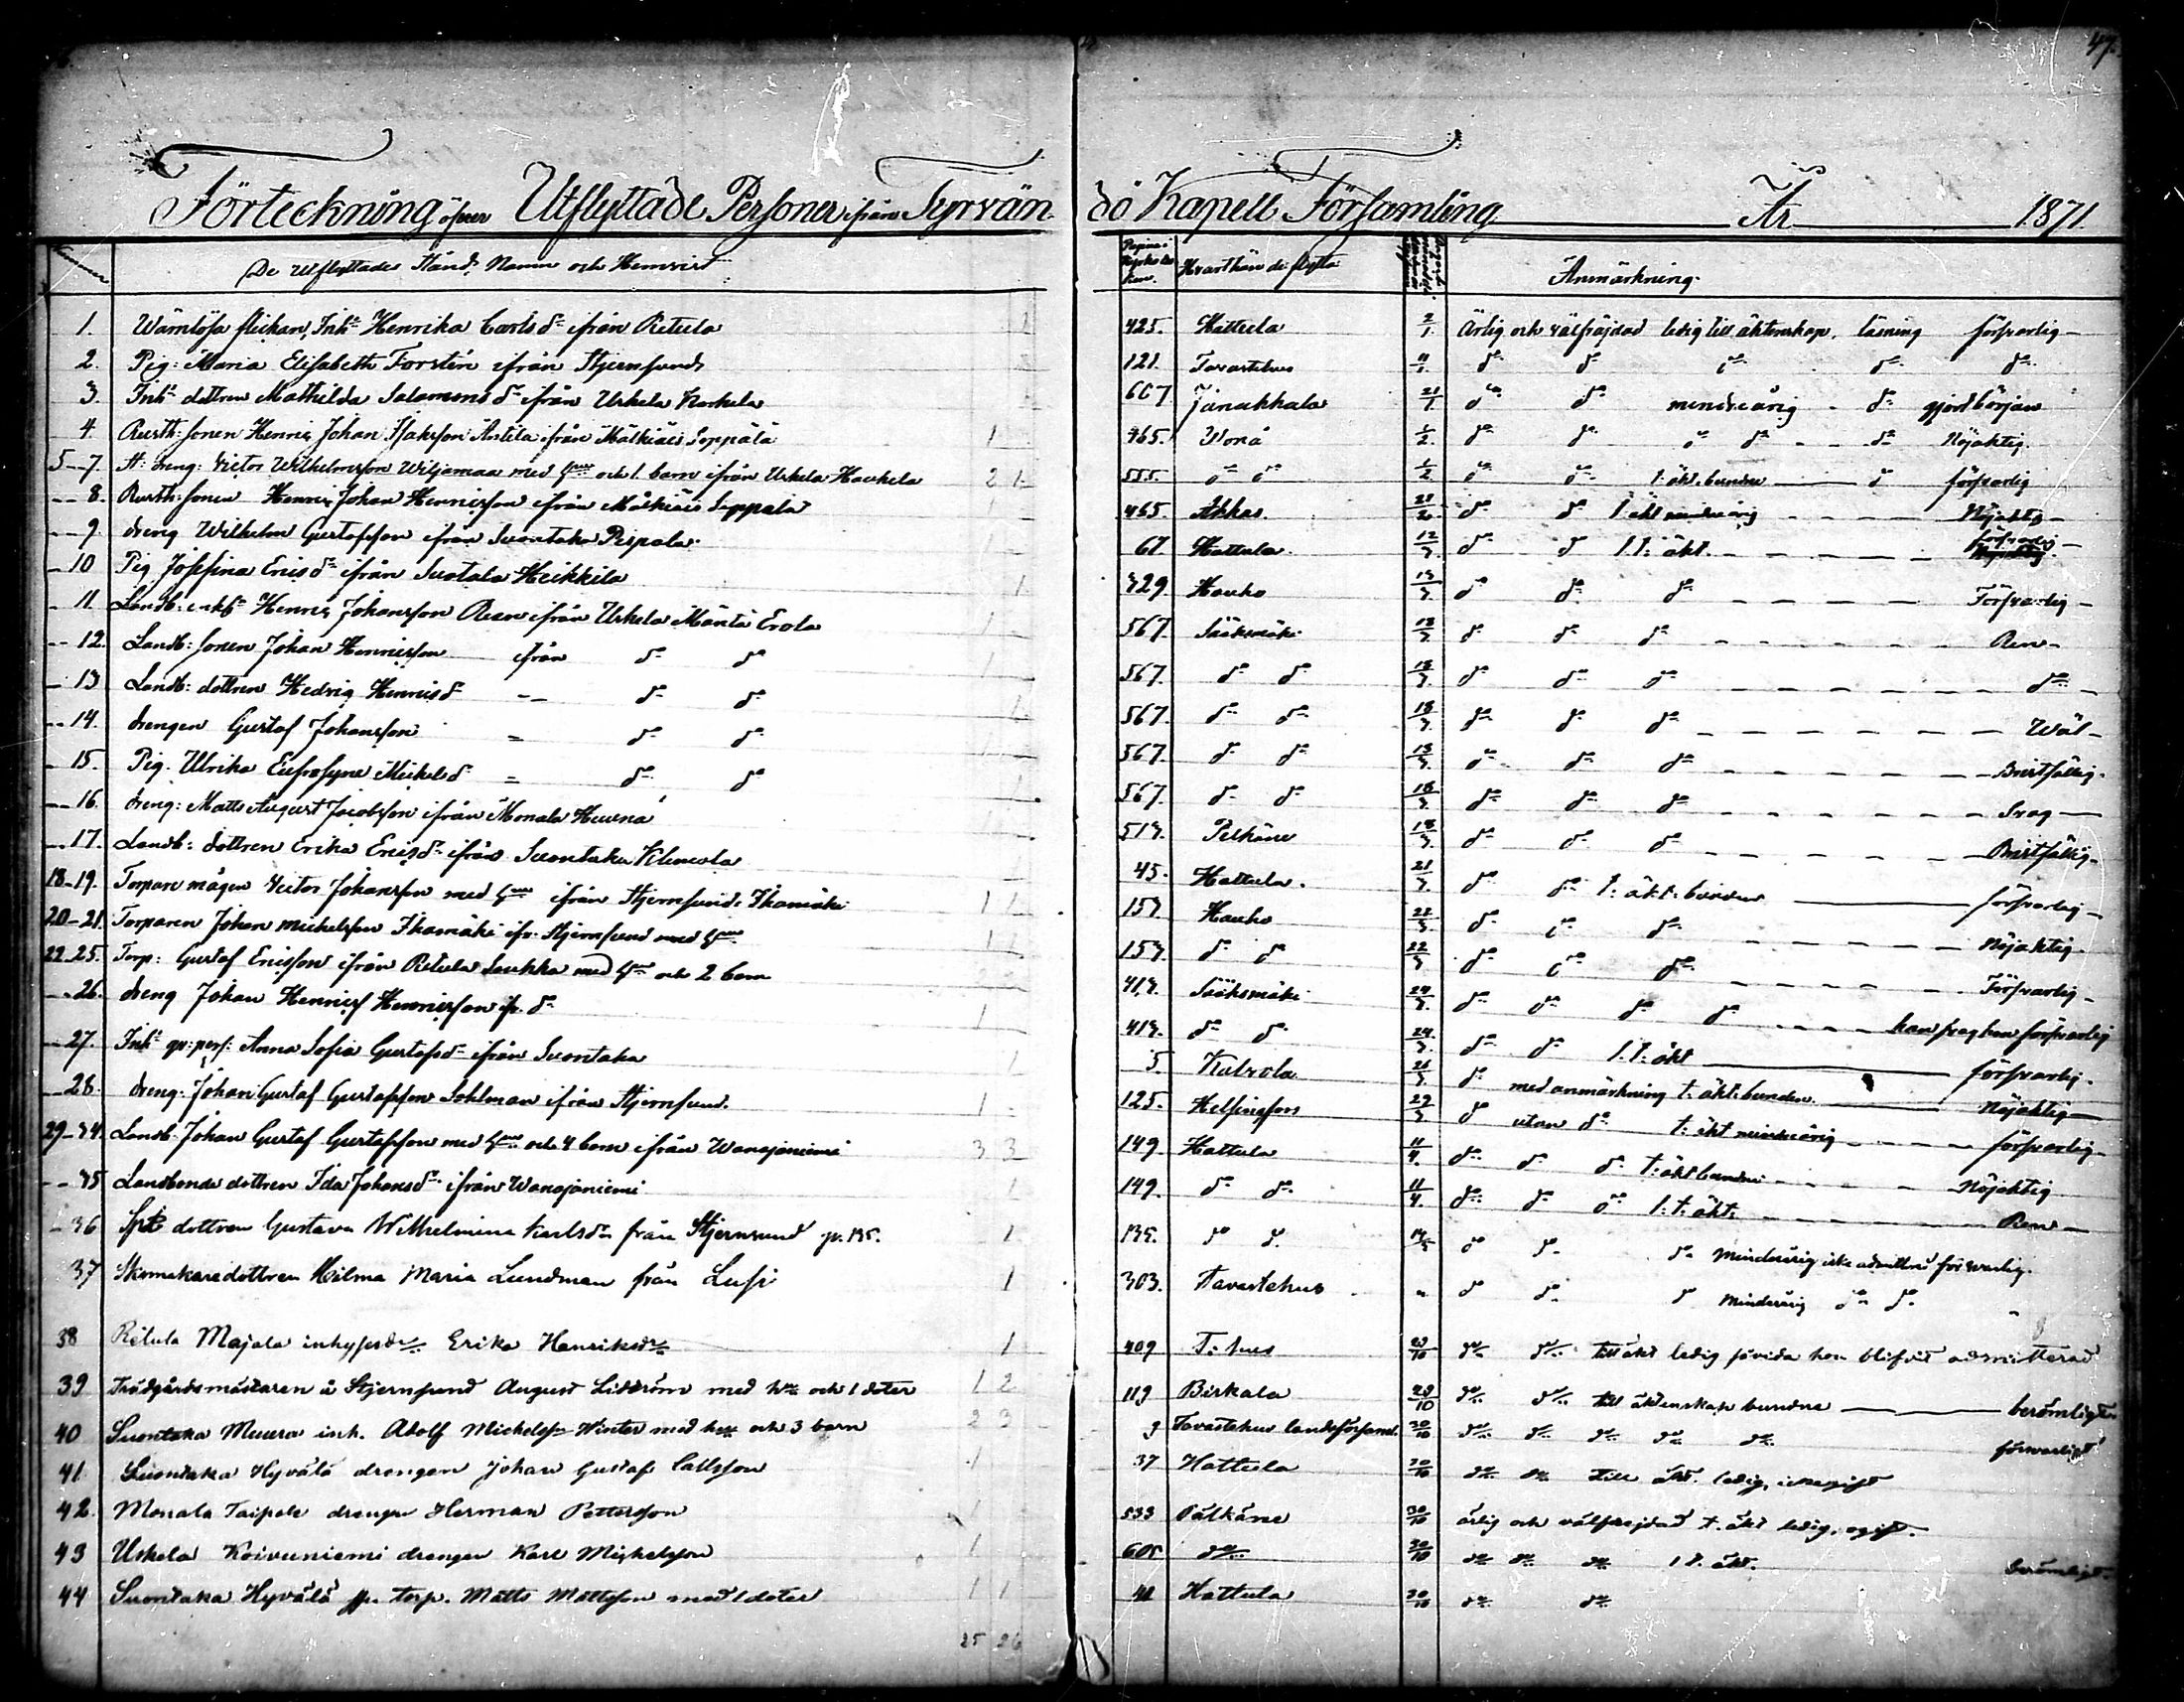 47.
Förteckning öfver Utflyttade Personer ifrån Tyrvändö Kapell Församling År 1871.
De utflyttades Stånd, Namn och Hemvist Hvarthän de flytta Anmärkning.
1. Wärnlösa flickan, Inhs Henrika Carlsdr ifrån Retula 425. Hattula 2/1. Ärlig och välfräjdad ledig till äktenskap, läsning försvarlig
2. Pig: Maria Elisabeth Forstén ifrån Stjernsund 121. Tavastehus 11/1. do do do do do
3. Inhs dottren Mathilda Salomonsdr ifrån Uskela 667 Janakkala 21/1. do do minderårig do gjort början
4. Rusth: sonen Henric Johan Isaksson Anttila ifrån Mälkiäis Seppälä 1 465. 1/2. do do do do do Nöjaktig.
5-7. St: dreng: Victor Wilhelmsson Wiljamaa med hru och 1. barn ifrån Uskela 2 1. 555. do do 1/2 do do t: äkt. bunden do försvarlig
8. Rusth: sonen Henric Johan Henricsson ifrån Mälkiäis Seppälä 1 465. Akkas. do do t: äkt minderårig Nöjaktig
9. dreng Wilhelm Gustafsson ifrån Suontaka Pispala. 67. Hattula. 12/3. do do l. t: äkt. försvarlig
10 Pig Josefina Ericsdr ifrån Suotala Heikkilä 1 329. Hauho 13/3. do do do Försvarlig
11. Landb: enkl: Henric Johansson ifrån Uskela Mäntä Erola 1 567. Sääksmäki 13/3. do do do Ren
12. Landb: sonen Johan Henricsson ifrån do do 1 567. do do 13/3. do do do do
13 Landb: dottren Hedvig Henricsdr do do 1 567. do do 13/3. do do do Wäl
14. drengen Gustaf Johansson do do 1 567. do do 13/3. do do do Bristfällig.
15. Pig. Ulrika Eufrosyne Mickelsdr do do 1 567. do do 13/3. do do do Svag
16. dreng: Matts August Jacobsson ifrån Monala 513. Pelkäne 13/3. do do do Bristfällig
17. Landb: dottren Erika Ericsdr ifrån Suontaka 45. Hattula. 21/3. do do t: äkt: bunden försvarlig
18-19. Torpare mågen Victor Johansson med hru ifrån Stjernsund Ikamäki 1 1 153 Hauho 22/3. do do do Nöjaktig.
20-21. Torparen Johan Mickelsson Ikamäki ifr. Stjernsund med hru 1 1 153. do do 22/3 do do do Försvarlig
22-25. Torp: Gustaf Ericsson ifrån Retula Seukka med hru och 2 barn 413. Sääksmäki 24/3. do do do do han svag hon försvarlig
26. dreng Johan Henricsson ifr. do 1 413. do do 24/3. do do l. t: äkt försvarlig.
27. Inhs qv: pers: Anna Sofia Gustafsdr ifrån Suontaka 1 5 Kalvola 26/3. do med anmärkning t: äkt: bunden. Nöjaktig
28. dreng: Johan Gustaf Gustafsson Sohlman ifrån Stjernsund. 1 125. Helsingfors 29/3 do utan do t: äkt minderårig försvarlig
29-34. Landb. Johan Gustaf Gustafsson med hru och 4 barn ifrån Wanajaniemi 3 3 149. Hattula 11/4. do do do t: äkt bunden Nöjaktig
35 Landbonde dottren Ida Johansdr ifrån Wanajaniemi 1 149. do do 11/4. do do do l: t: äkt: Ren
36 dottren Gustava Wilhelmina Karlsdr från Stjernsund p. 135. 1 135. do do do do do Minderårig icke admitterad försvarlig.
37 Skomakaredottren Hilma Maria Lundman från Lusi 1 303. Tavastehus do do do Minderårig do do
38 Retula Majala inhysesdr Erika Henriksdr 1 409 T:hus 29/10 do do till äkt ledig såvida hon blifvit admitterad
39 Trädgårdsmästaren å Stjernsund August Lidström med hru och 1 doter 1 2 119 Birkala 29/10 do do till äktenskap bundna berömligt
40 Suontaka Muura inh. Adolf Mickelsson Winter med hru och 3 barn 2 3 9 Tavastehus landsförsaml. 30/10 do do do do do försvarligt
41 Suontaka Hyvälä drengen Johan Gustaf Carlsson 1 37 Hattula 30/10 do do till äkt. ledig, ickegift
42 Monala Taipale drengen Herman Pettersson 1 533 Pälkäne 30/10 ärlig och välfrejdad t. äkt ledig, ogift.
43 Uskela Koivuniemi drengen Karl Mickelsson 1 605 do 30/10 do do do l t. äkt. berömligt
44 Suontaka Hyvälä torp. Matts Mattsson med 1 doter 1 1 41 Hattula 30/10 do do
25 26